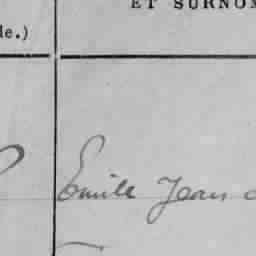 ET SURNOM
de.)
Emile Jean